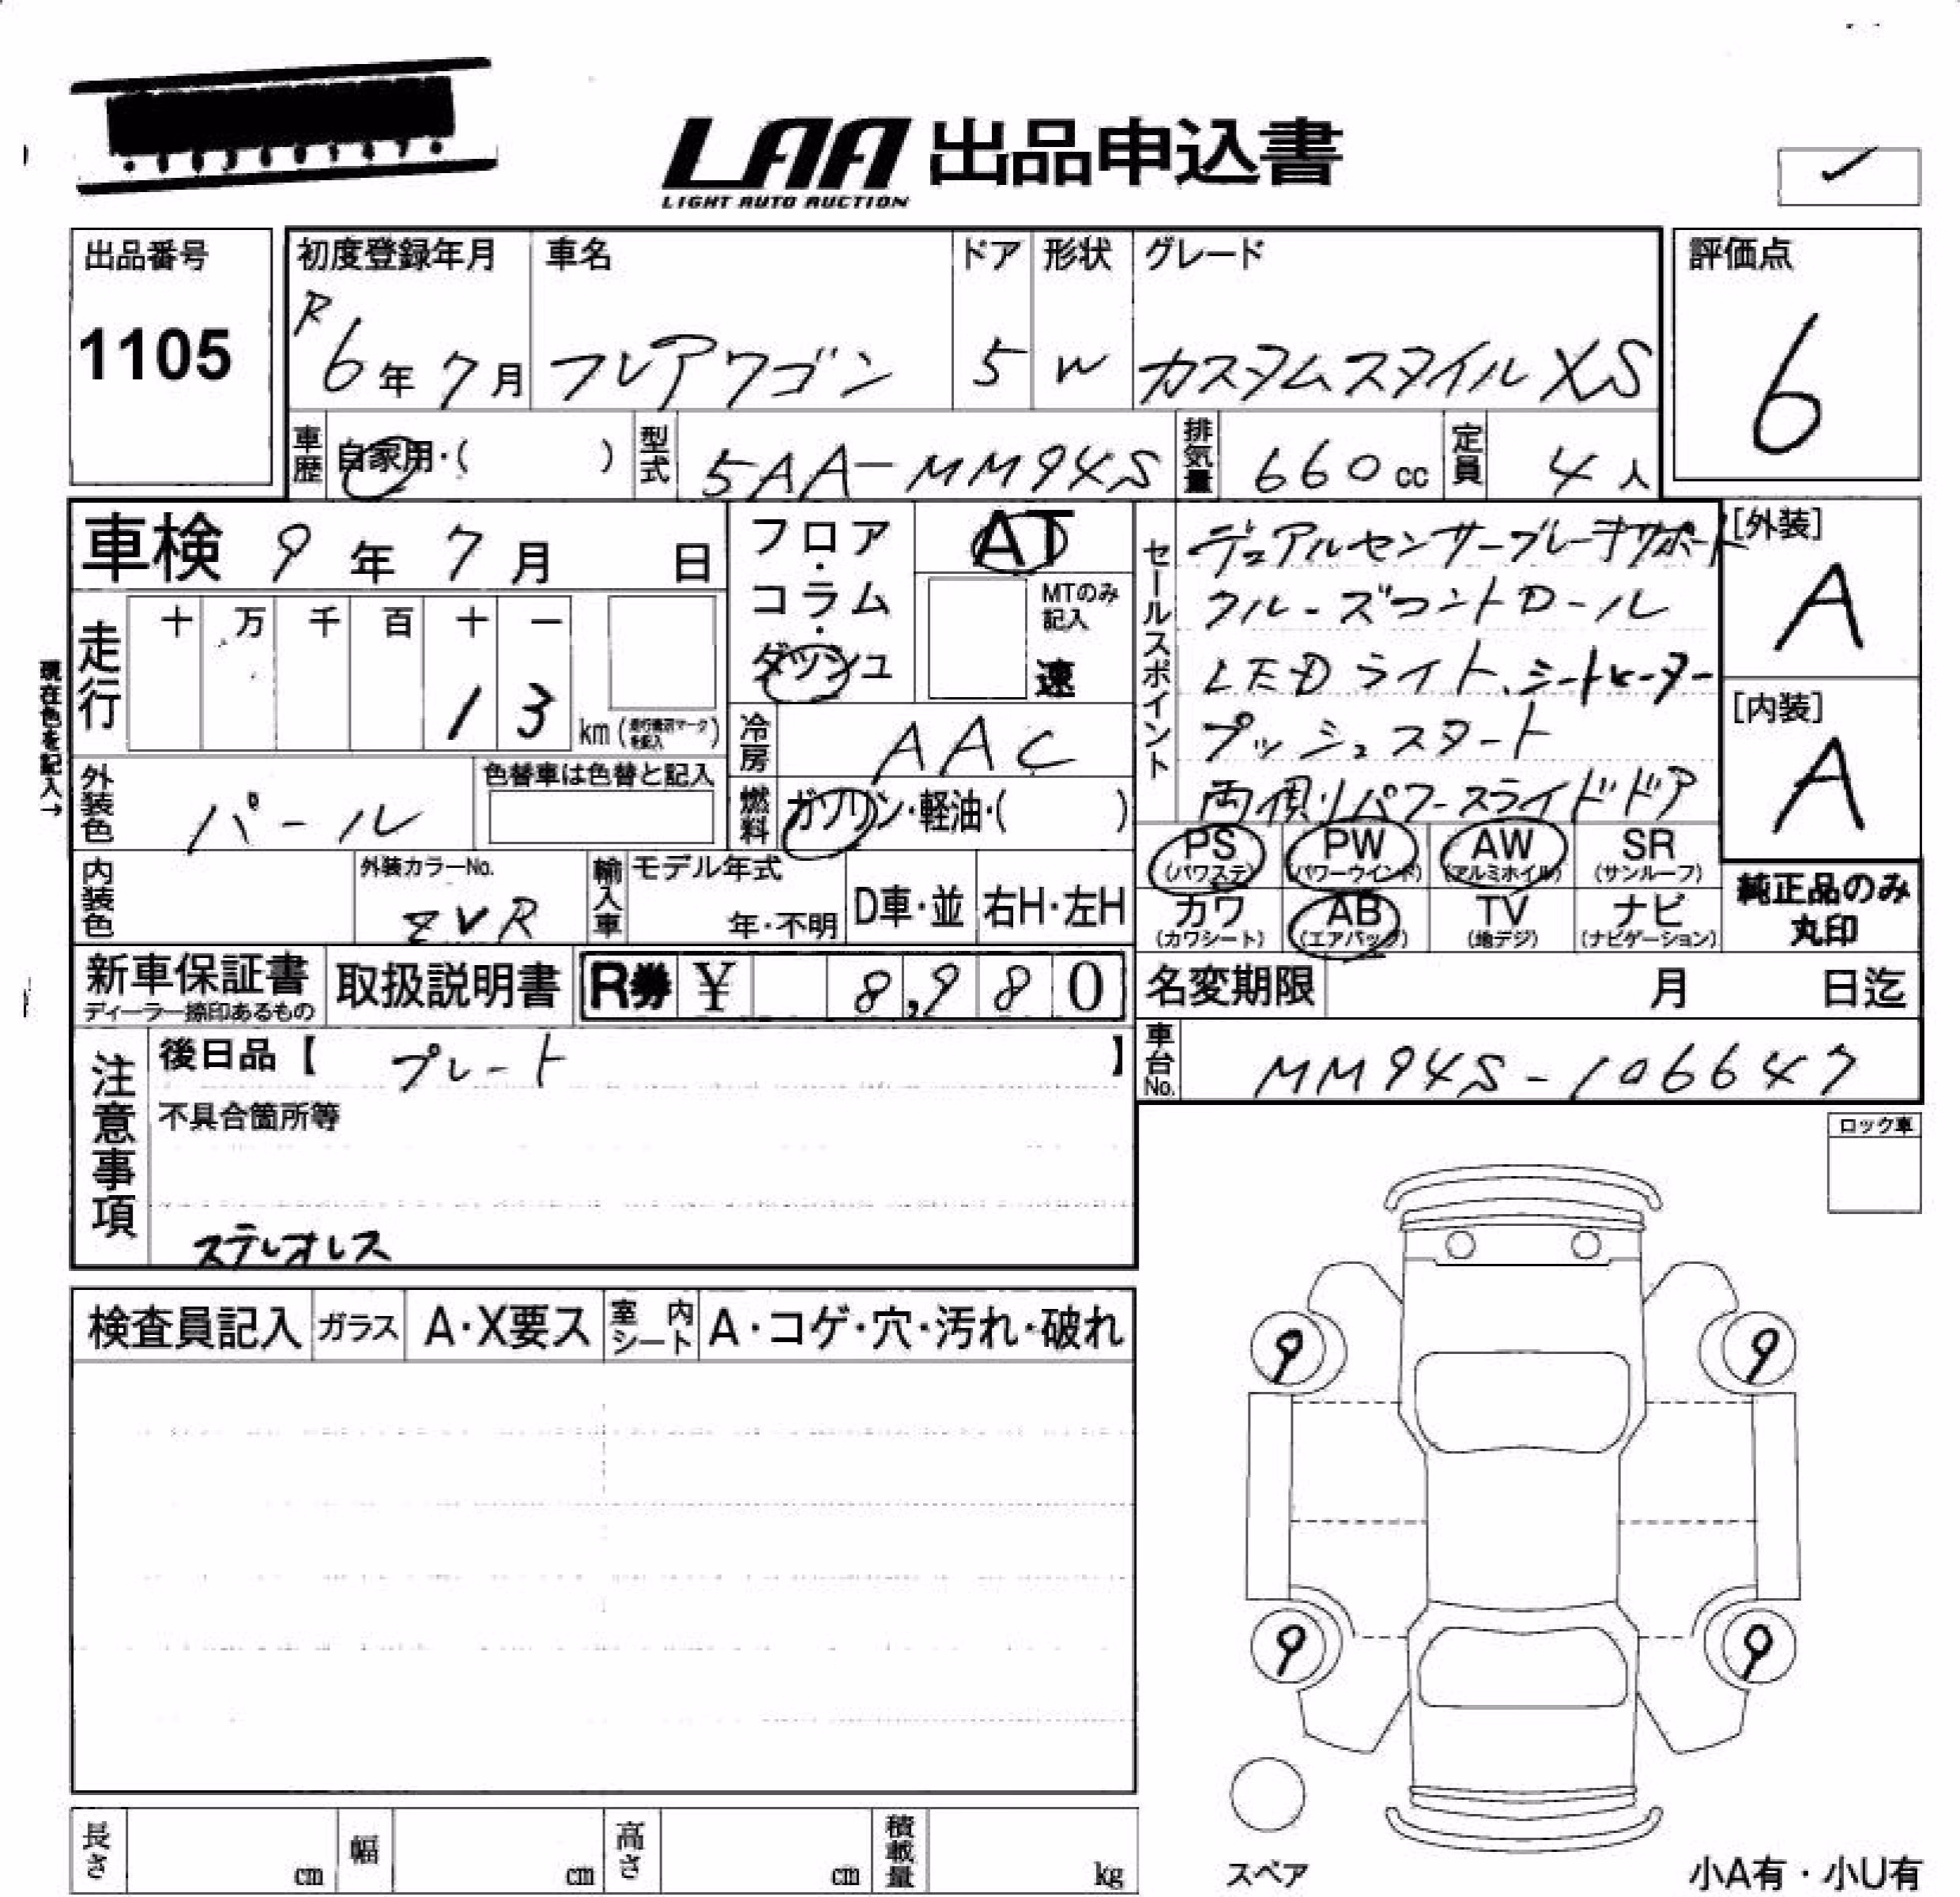 LAA 出品申込書
LIGHT AUTO AUCTION
出品番号
1105
初度登録年月
R
6年7月
車名
フレアワゴン
ドア
5
形状
W
グレード
カスタムスタイル XS
評価点
6
車歴
自家用・( )
型式
5AA-MM94S
排気量
660cc
定員
4人
車検 9年7月 日
フロア・コラム・ダッシュ
AT
MTのみ記入
速
セールスポイント
デュアルセンサーブレーキサポート
クルーズコントロール
LEDライト、シートヒーター
プッシュスタート
両側パワースライドドア
[外装]
A
[内装]
A
走行
十 万 千 百 十 一
1 3
km(
)
冷房
AAC
現在色を記入→
外装色
パール
色替車は色替と記入
燃料
ガソリン・軽油・( )
PS
(パワステ)
PW
(パワーウインド)
AW
(アルミホイル)
SR
(サンルーフ)
内装色
外装カラーNo.
ZVR
輸入車
モデル年式
年・不明
D車・並
右H・左H
カワ
(カワシート)
AB
(エアバッグ)
TV
(地デジ)
ナビ
(ナビゲーション)
純正品のみ
丸印
新車保証書
ディーラー捺印あるもの
取扱説明書
R券 ¥ 8,980
名変期限 月 日迄
注意事項
後日品【 プレート 】
不具合箇所等
ステレオレス
車台No.
MM94S-106647
ロック車
検査員記入
ガラス
A・X要ス
室内シート
A・コゲ・穴・汚れ・破れ
9
9
9
9
長さ
cm
幅
cm
高さ
cm
積載量
kg
スペア
小A有・小U有